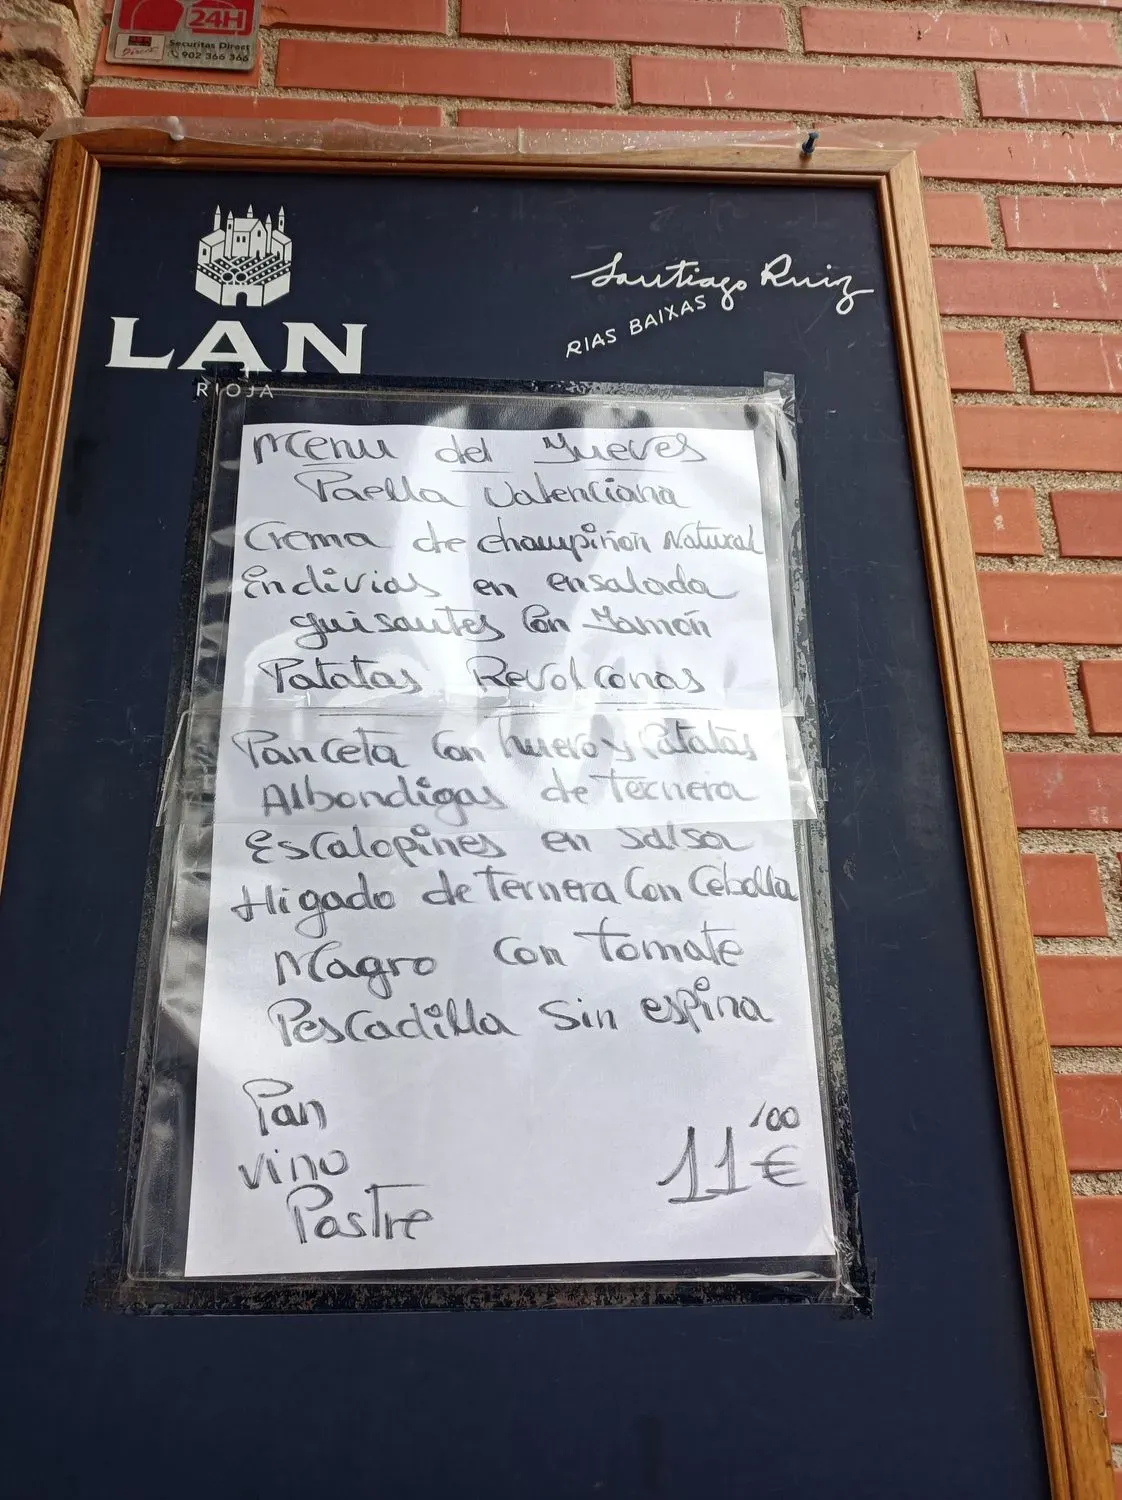 24H
Securitas Direct
902 366 366
LAN
RIOJA
Santiago Ruiz
RIAS BAIXAS
Menu del Jueves
Paella Valenciana
Crema de champiñon Natural
Endivias en ensalada
guisantes Con Jamón
Patatas Revolconas
Panceta Con huevo y Patatas
Albondigas de Ternera
Escalopines en Salsa
Higado de Ternera Con Cebolla
Magro Con tomate
Pescadilla Sin espina
Pan
vino
Postre
11'00 €